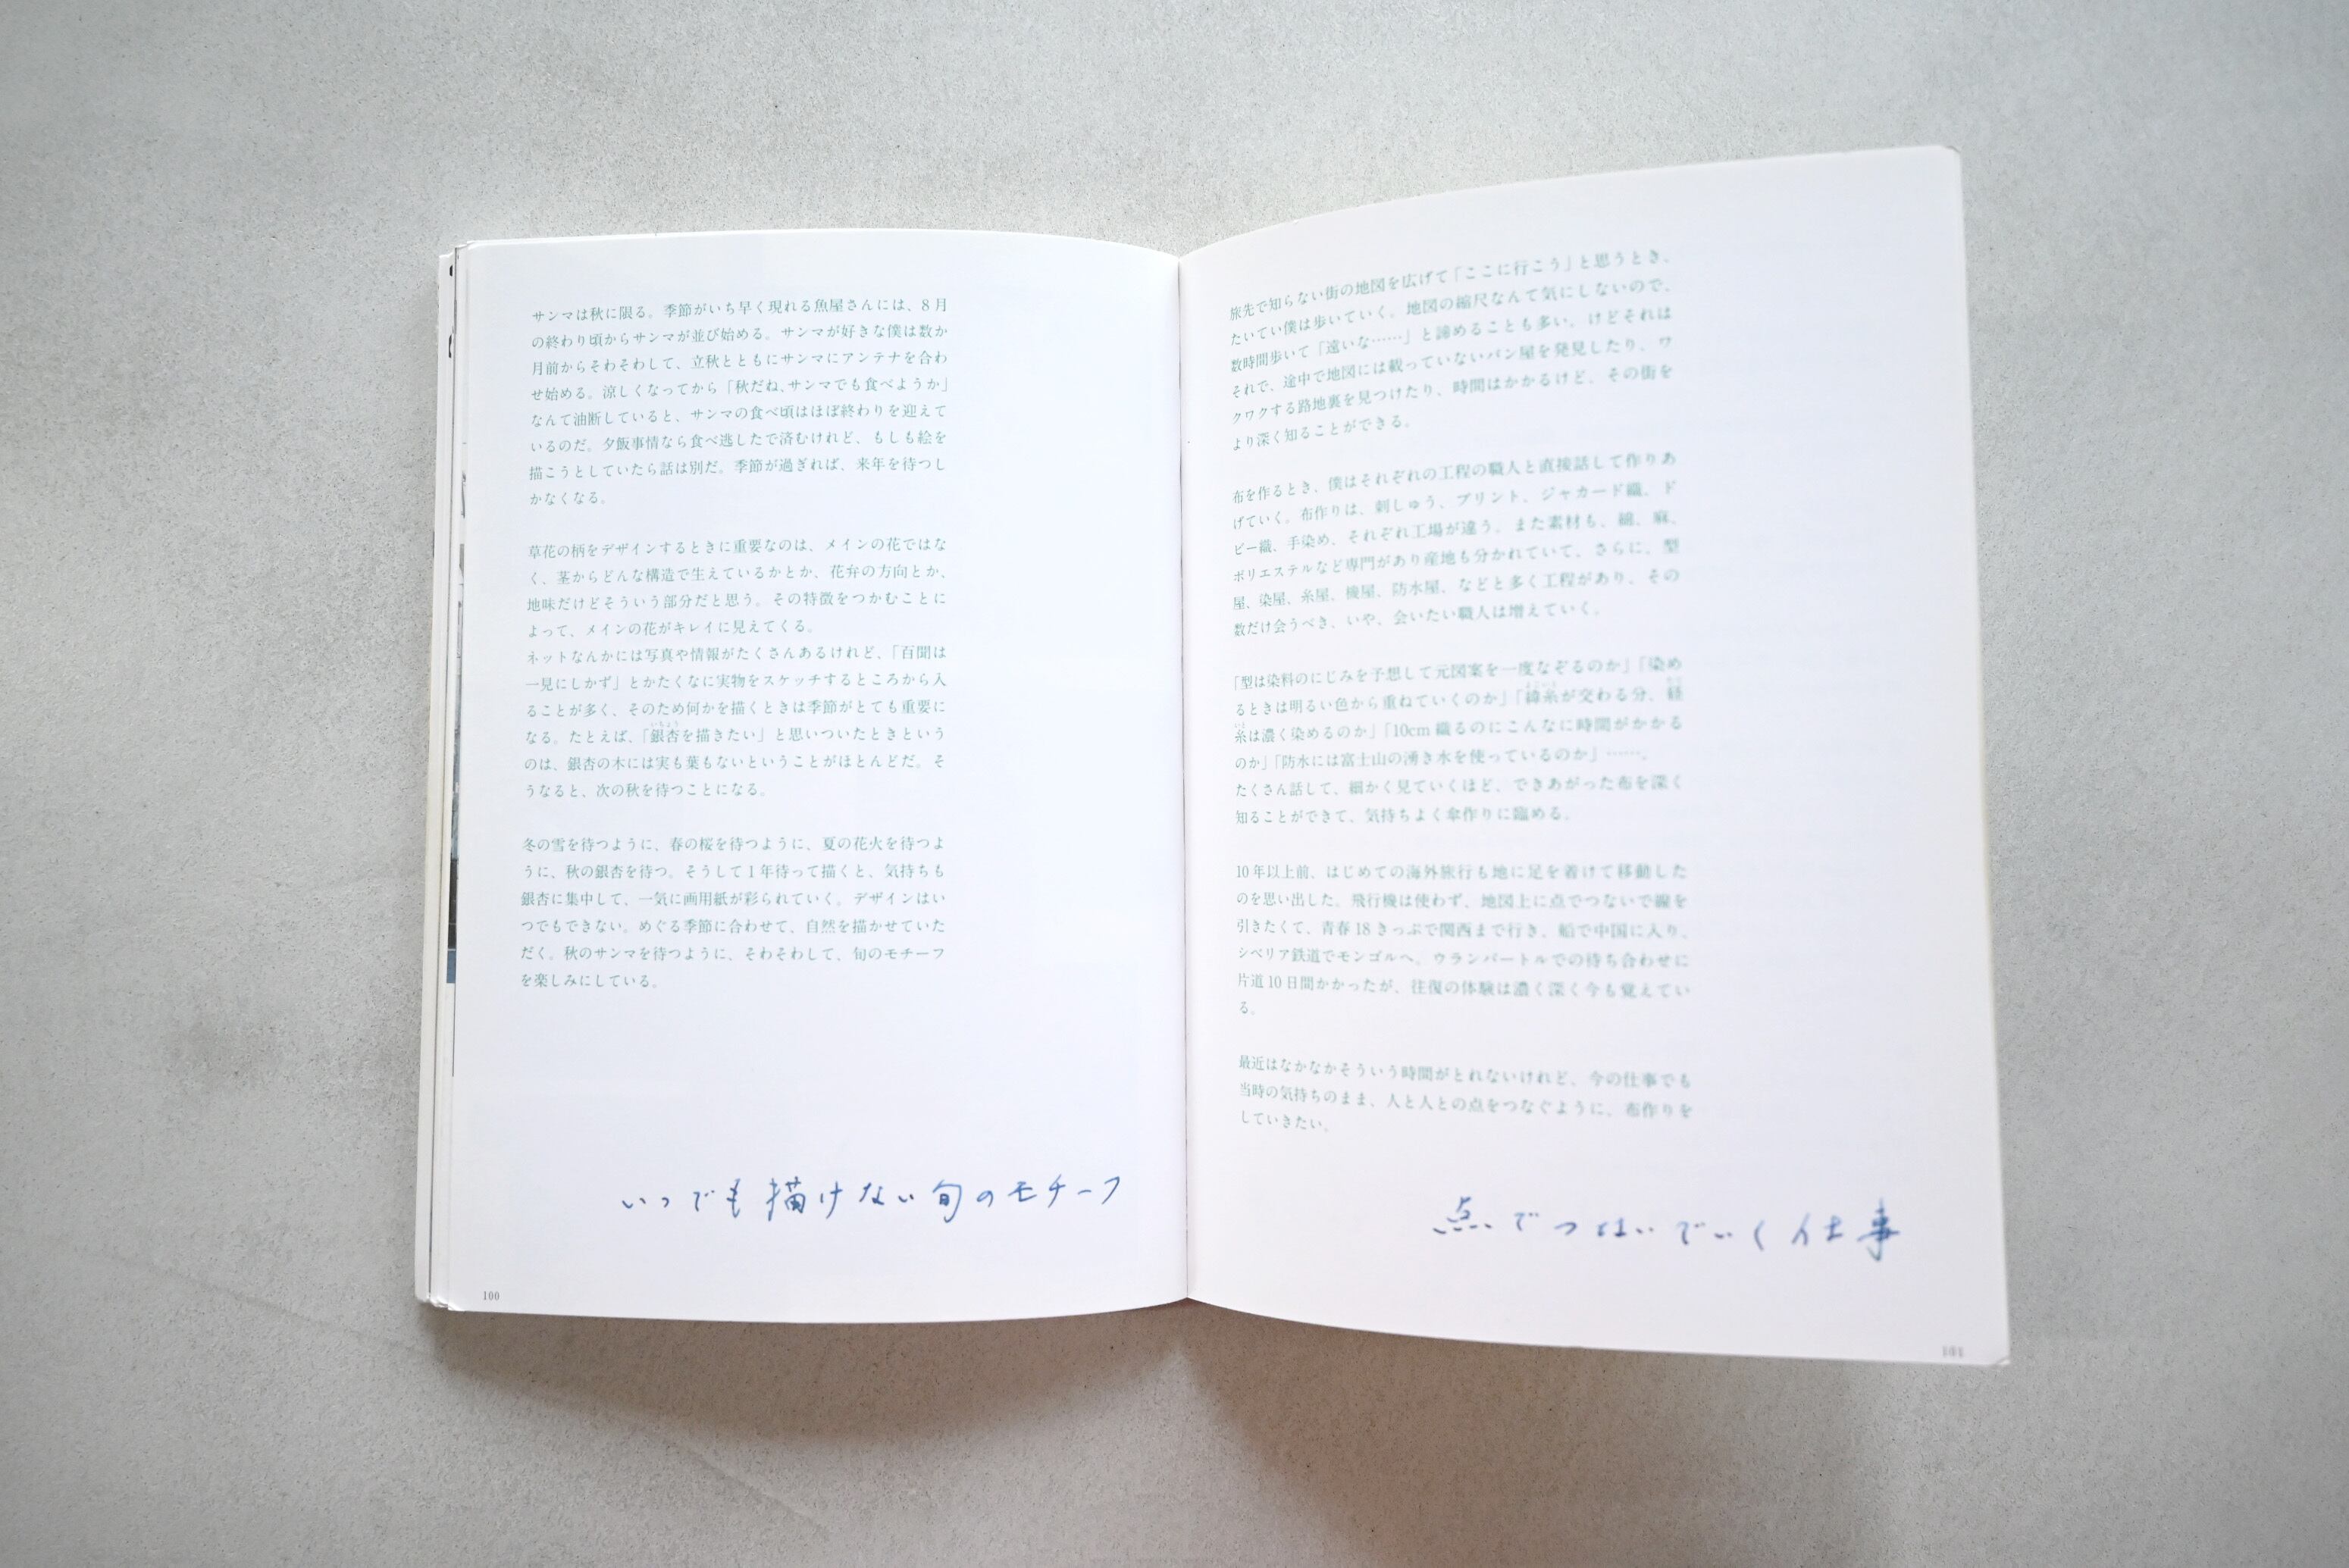 サンマは秋に限る。季節がいち早く現れる魚屋さんには、8月
の終わり頃からサンマが並び始める。サンマが好きな僕は数か
月前からそわそわして、立秋とともにサンマにアンテナを合わ
せ始める。涼しくなってから「秋だね、サンマでも食べようか」
なんて油断していると、サンマの食べ頃はほぼ終わりを迎えて
いるのだ。夕飯事情なら食べ逃したで済むけれど、もしも絵を
描こうとしていたら話は別だ。季節が過ぎれば、来年を待つし
かなくなる。
草花の柄をデザインするときに重要なのは、メインの花ではな
く、茎からどんな構造で生えているかとか、花弁の方向とか、
地味だけどそういう部分だと思う。その特徴をつかむことに
よって、メインの花がキレイに見えてくる。
ネットなんかには写真や情報がたくさんあるけれど、「百聞は
一見にしかず」とかたくなに実物をスケッチするところから入
ることが多く、そのため何かを描くときは季節がとても重要に
いちょう
なる。たとえば、「銀杏を描きたい」と思いついたときという
のは、銀杏の木には実も葉もないということがほとんどだ。そ
うなると、次の秋を待つことになる。
冬の雪を待つように、春の桜を待つように、夏の花火を待つよ
うに、秋の銀杏を待つ。そうして1年待って描くと、気持ちも
銀杏に集中して、一気に画用紙が彩られていく。デザインはい
つでもできない。めぐる季節に合わせて、自然を描かせていた
だく。秋のサンマを待つように、そわそわして、旬のモチーフ
を楽しみにしている。
いつでも描けない旬のモチーフ
100
旅先で知らない街の地図を広げて「ここに行こう」と思うとき、
たいてい僕は歩いていく。地図の縮尺なんて気にしないので、
数時間歩いて「遠いな……」と諦めることも多い。けどそれは
それで、途中で地図には載っていないパン屋を発見したり、ワ
クワクする路地裏を見つけたり、時間はかかるけど、その街を
より深く知ることができる。
布を作るとき、僕はそれぞれの工程の職人と直接話して作りあ
げていく。布作りは、刺しゅう、プリント、ジャカード織、ド
ビー織、手染め、それぞれ工場が違う。また素材も、綿、麻、
ポリエステルなど専門があり産地も分かれていて、さらに、型
屋、染屋、糸屋、機屋、防水屋、などと多く工程があり、その
数だけ会うべき、いや、会いたい職人は増えていく。
「型は染料のにじみを予想して元図案を一度なぞるのか」「染め
るときは明るい色から重ねていくのか」「緯糸が交わる分、経
糸は濃く染めるのか」「10cm 織るのにこんなに時間がかかる
のか」「防水には富士山の湧き水を使っているのか」……。
たくさん話して、細かく見ていくほど、できあがった布を深く
知ることができて、気持ちよく傘作りに臨める。
10年以上前、はじめての海外旅行も地に足を着けて移動した
のを思い出した。飛行機は使わず、地図上に点でつないで線を
引きたくて、青春18きっぷで関西まで行き、船で中国に入り、
シベリア鉄道でモンゴルへ。ウランバートルでの待ち合わせに
片道10日間かかったが、往復の体験は濃く深く今も覚えてい
る。
最近はなかなかそういう時間がとれないけれど、今の仕事でも
当時の気持ちのまま、人と人との点をつなぐように、布作りを
していきたい。
点でつないでいく仕事
101